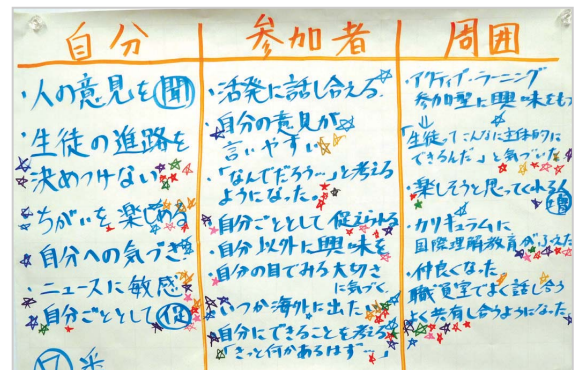 自分
・人の意見を聞
・生徒の進路を
決めつけない
・ちがいを楽しめる
・自分への気づき
・ニュースに敏感
・自分ごととして 促
参加者
・活発に話し合える!
・自分の意見が
言いやすい
・「なんでだろう…」と考える
ようになった。
・自分ごととして 促えられる
・自分以外に興味を
・自分の目でみる大切さ
に気づく。
・いつか海外に出た
・自分にできることを考える
「きっと何かあるはず…」
周囲
・アクティブ・ラーニング
参加型に興味をもつ
↓
「生徒ってこんなに主体的に
できるんだ」と気づいた
・楽しそうと思ってくれる人
増
・カリキュラムに
国際理解教育がふえた
・仲良くなった
職員室でよく話し合う
よく共有し合うようになった。